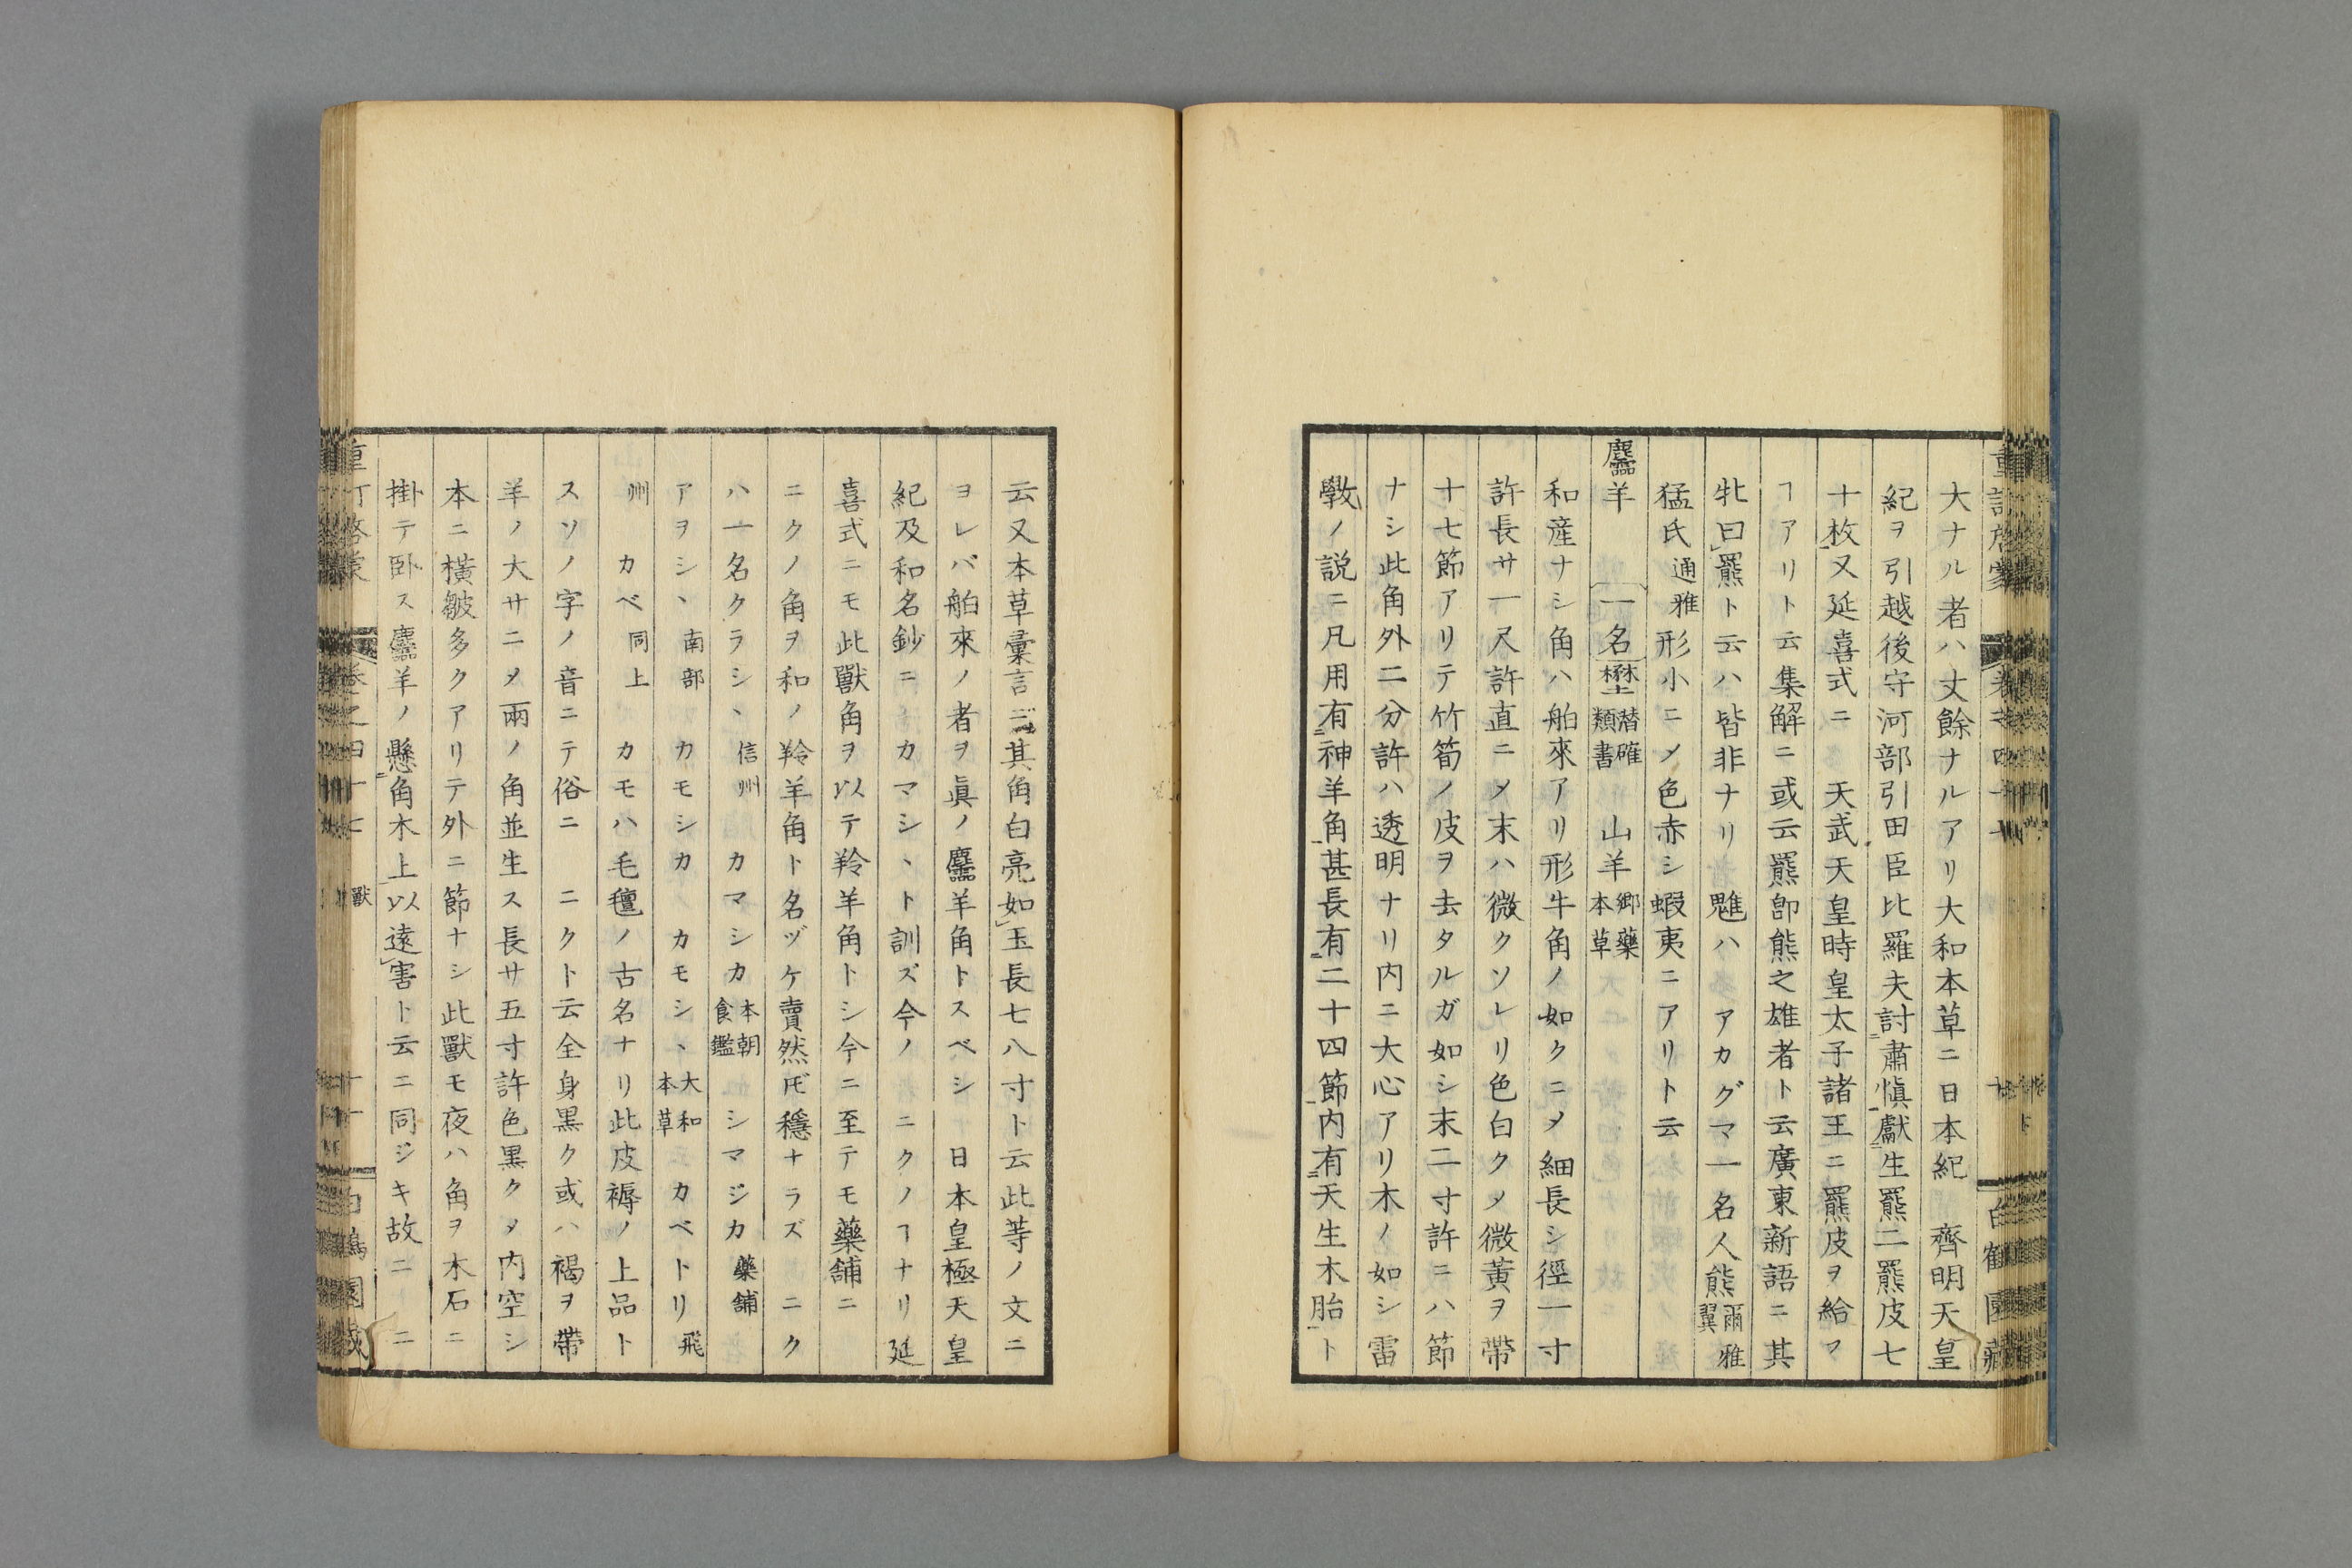 大ナル者ハ丈餘ナルアリ大和本草ニ日本紀　齊明天皇
紀ヲ引越後守河部引田臣比羅夫討肅愼獻生羆二羆皮七
十枚又延喜式ニ　天武天皇時皇太子諸王ニ羆皮ヲ給フ
ヿアリト云集解ニ或云羆卽熊之雄者ト云廣東新語ニ其
牝曰羆ト云ハ皆非ナリ　魋ハ　アカグマ一名人熊爾雅翼
猛氏通雅形小ニメ色赤シ蝦夷ニアリト云
麢羊　一名　　潛確類書　山羊郷藥本草
和産ナシ角ハ舶來アリ形牛角ノ如クニメ細長シ徑一寸
許長サ一尺許直ニメ末ハ微クソレリ色白クメ微黃ヲ帶
十七節アリテ竹筍ノ皮ヲ去タルガ如シ末二寸許ニハ節
ナシ此角外二分許ハ透明ナリ内ニ大心アリ木ノ如シ雷
斆ノ説ニ凡用有神羊角甚長有二十四節内有天生木胎ト
云又本草彙言ニ其角白亮如玉長七八寸ト云此等ノ文ニ
ヨレバ舶來ノ者ヲ眞ノ麢羊角トスベシ　日本皇極天皇
紀及和名鈔ニ　カマシヽト訓ズ今ノ　ニクノヿナリ延
喜式ニモ此獸角ヲ以テ羚羊角トシ今ニ至テモ藥鋪ニ
ニクノ角ヲ和ノ羚羊角ト名ヅケ賣然𪜈穩ナラズ　ニク
ハ一名クラシヽ信州　カマシカ本朝食鑑　シマジカ藥鋪
アヲシヽ南部　カモシカ　カモシヽ大和本草　カベトリ飛
州　カベ同上　カモハ毛氊ノ古名ナリ此皮褥ノ上品ト
スソノ字ノ音ニテ俗ニ　ニクト云全身黒ク或ハ褐ヲ帶
羊ノ大サニメ兩ノ角並生ス長サ五寸許色黒クメ内空シ
本ニ橫皺多クアリテ外ニ節ナシ此獸モ夜ハ角ヲ木石ニ
掛テ卧ス麢羊ノ懸角木上以遠害ト云ニ同ジキ故ニ　ニ